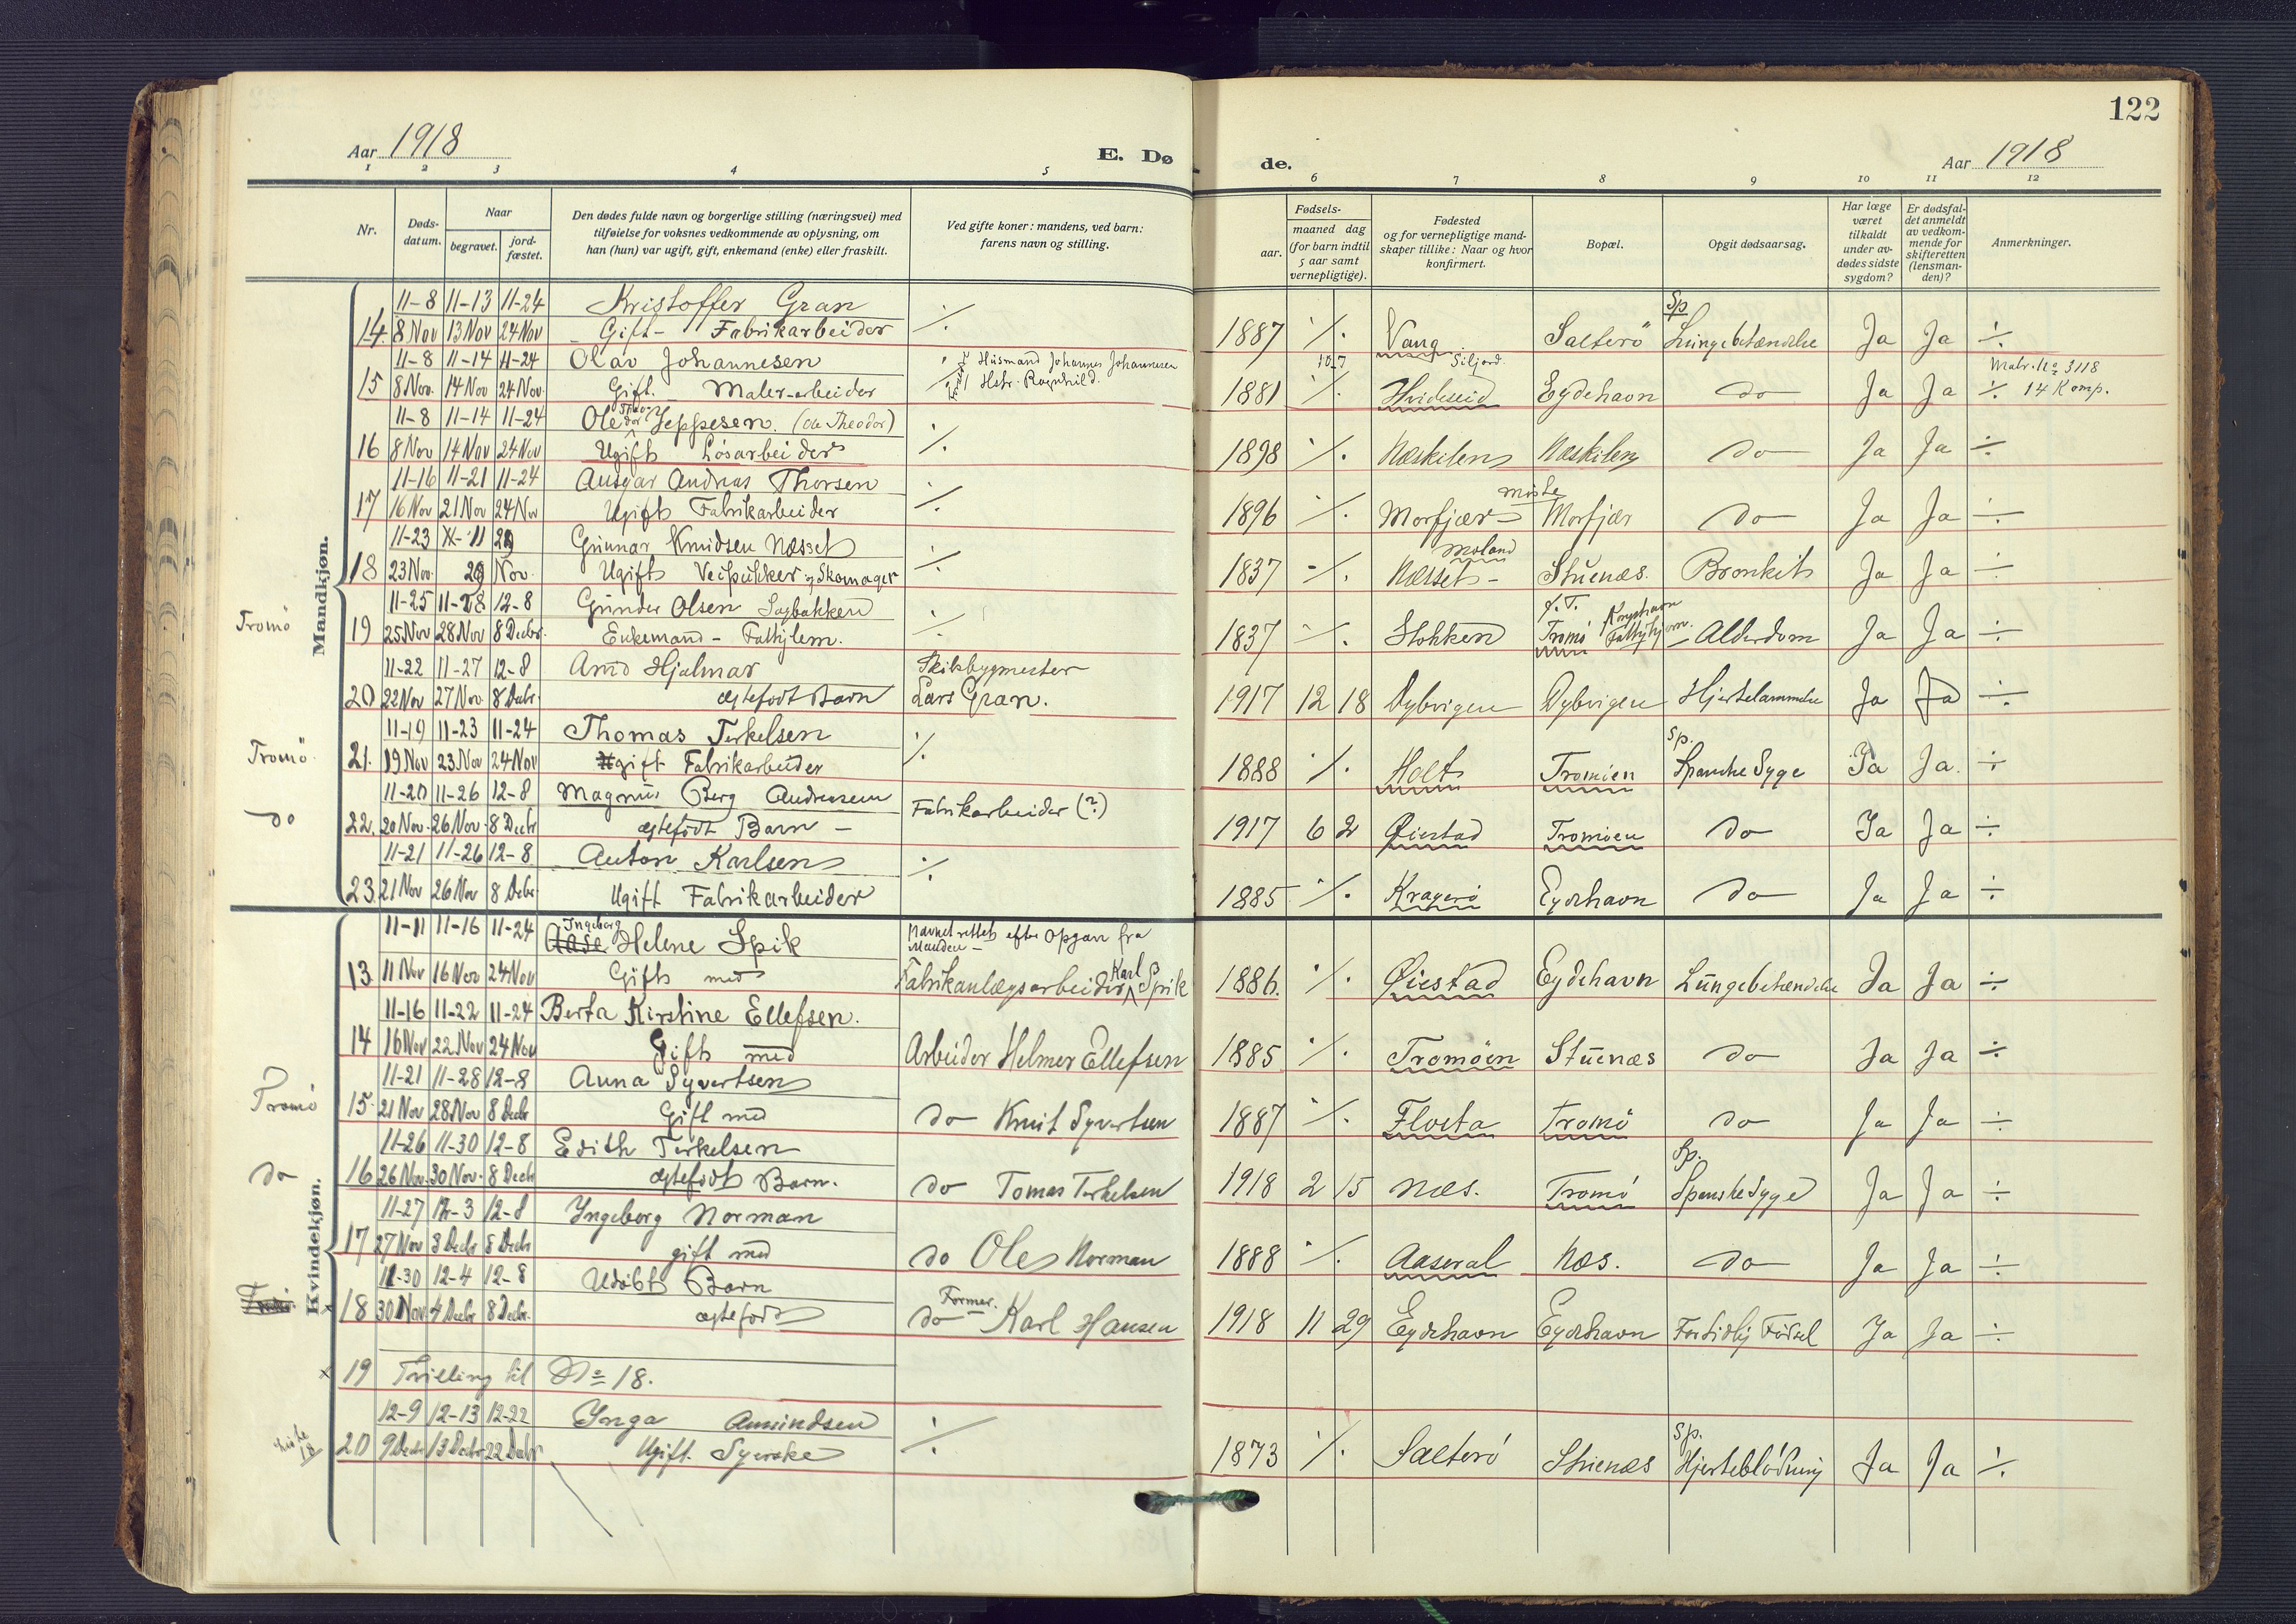 122
Aar 1918
E. Dø
de.
Aar 1918
1 2 3 4 5 6 7 8 9 10 11 12
Nr.
Døds-datum.
Naar
begravet.
jord-fæstet.
Den dødes fulde navn og borgerlige stilling (næringsvei) med
tilføielse for voksnes vedkommende av oplysning, om
han (hun) var ugift, gift, enkemand (enke) eller fraskilt.
Ved gifte koner: mandens, ved barn:
farens navn og stilling.
Fødsels-
aar.
maaned dag
(for barn indtil
5 aar samt
vernepligtige).
Fødested
og for vernepligtige mand-
skaper tillike: Naar og hvor
konfirmert.
Bopæl.
Opgit dødsaarsag.
Har læge
været
tilkaldt
under av-
dødes sidste
sygdom?
Er dødsfal-
det anmeldt
av vedkom-
mende for
skifteretten
(lensman-
den)?
Anmerkninger.
Mandkjøn.
11-8 11-13 11-24 Kristoffer Gran Sp.
14. 8 Nov 13 Nov 24 Nov Gift - Fabrikarbeider ./. 1887 ./. Vang Salterö Lungebetændelse Ja Ja ./.
11-8 11-14 11-24 Olav Johannesen Husmand Johannes Johannesen 10-7 Siljord. Matr. No 3118
15 8 Nov. 14 Nov 24 Nov. Gift. - Maler-arbeider Hstr. Ragnhild. 1881 ./. Hvideseid Eydehavn do Ja Ja ./. 14 Komp.
11-8 11-14 11-24 Ole Jeppesen. (Ole Theodor)
16 8 Nov 14 Nov 24 Nov Ugift Løsarbeider ./. 1898 ./. Næskilen Næskilen do Ja Ja ./.
11-16 11-21 11-24 Ansgar Andreas Thorsen
17 16 Nov 21 Nov 24 Nov Ugift Fabrikarbeider ./. 1896 ./. Morfjær - Morfjær do Ja Ja ./.
11-23 11 29 Gunnar Knudsen Næsset Moland
18 23 Nov. 29 Nov. Ugift Veipukker og Skomager ./. 1837 ./. Næsset - Stuenæs. Bronkit Ja Ja ./.
11-25 11-28 12-8 Gunder Olsen Sagbakken f. T.
Tromö 19 25 Nov 28 Nov 8 Decbr. Enkemand - Fattiglem. ./. 1837 ./. Stokken Tromö - Alderdom Ja Ja ./.
11-22 11-27 12-8 Arnd Hjalmar Skibsbygmester
20 22 Nov 27 Nov 8 Decbr. ægtefødt Barn Lars Gran. 1917 12 18 Dybvigen Dybvigen Hjertelammelse Ja Ja ./.
11-19 11-23 11-24 Thomas Terkelsen Sp.
Tromö. 21. 19 Nov 23 Nov 24 Nov gift Fabrikarbeider ./. 1888 ./. Holt Tromöen Spanske Syge Ja Ja. ./.
11-20 11-26 12-8 Magnus Berg Andreasen Fabrikarbeider (?)
do 22. 20 Nov. 26 Nov. 8 Decbr ægtefødt Barn - 1917 6 2 Øiestad Tromöen do Ja Ja ./.
11-21 11-26 12-8 Anton Karlsen
23. 21 Nov 26 Nov 8 Decbr. Ugift Fabrikarbeider ./. 1885 ./. Kragerö Eydehavn do Ja Ja ./.
Kvindekjøn.
11-11 11-16 11-24 Aase Ingeborg Helene Spik Navnet rettet efter Opgave fra Manden -
13 11 Nov 16 Nov 24 Nov Gift med Fabrikanlægsarbeider Karl Spik 1886. ./. Øiestad Eydehavn Lungebetændelse Ja Ja ./.
11-16 11-22 11-24 Berta Kirstine Ellefsen.
14 16 Nov 22 Nov 24 Nov Gift med Arbeider Helmer Ellefsen 1885 ./. Tromöen Stuenæs do Ja Ja ./.
11-21 11-28 12-8 Anna Syvertsen
Tromö 15. 21 Nov 28 Nov 8 Decbr Gift med do Knut Syvertsen 1887 ./. Flosta Tromö do Ja Ja ./.
11-26 11-30 12-8 Edith Terkelsen Sp.
do 16 26 Nov. 30 Nov. 8 Decbr ægtefødt Barn. do Tomas Terkelsen 1918 2 15 Næs. Tromö Spanske Syge Ja Ja ./.
11-27 12-3 12-8 Ingeborg Norman
17 27 Nov 3 Decbr 8 Decbr gift med do Ole Norman 1888 ./. Aaseral Næs. do Ja Ja ./.
11-30 12-4 12-8 Udøbt Barn Former.
x 18 30 Nov. 4 Decbr 8 Decbr. ægtefødt do Karl Hansen 1918 11 29 Eydehavn Eydehavn Fortidlig Fødsel Ja Ja ./.
x 19 Tvilling til No 18.
12-9 12-13 12-22 Ynga Amundsen Sp.
20 9 Decbr 13 Decbr 22 Decbr Ugift. Syerske ./. 1873 ./. Salterö Stuenæs Hjerteblødning Ja Ja ./.